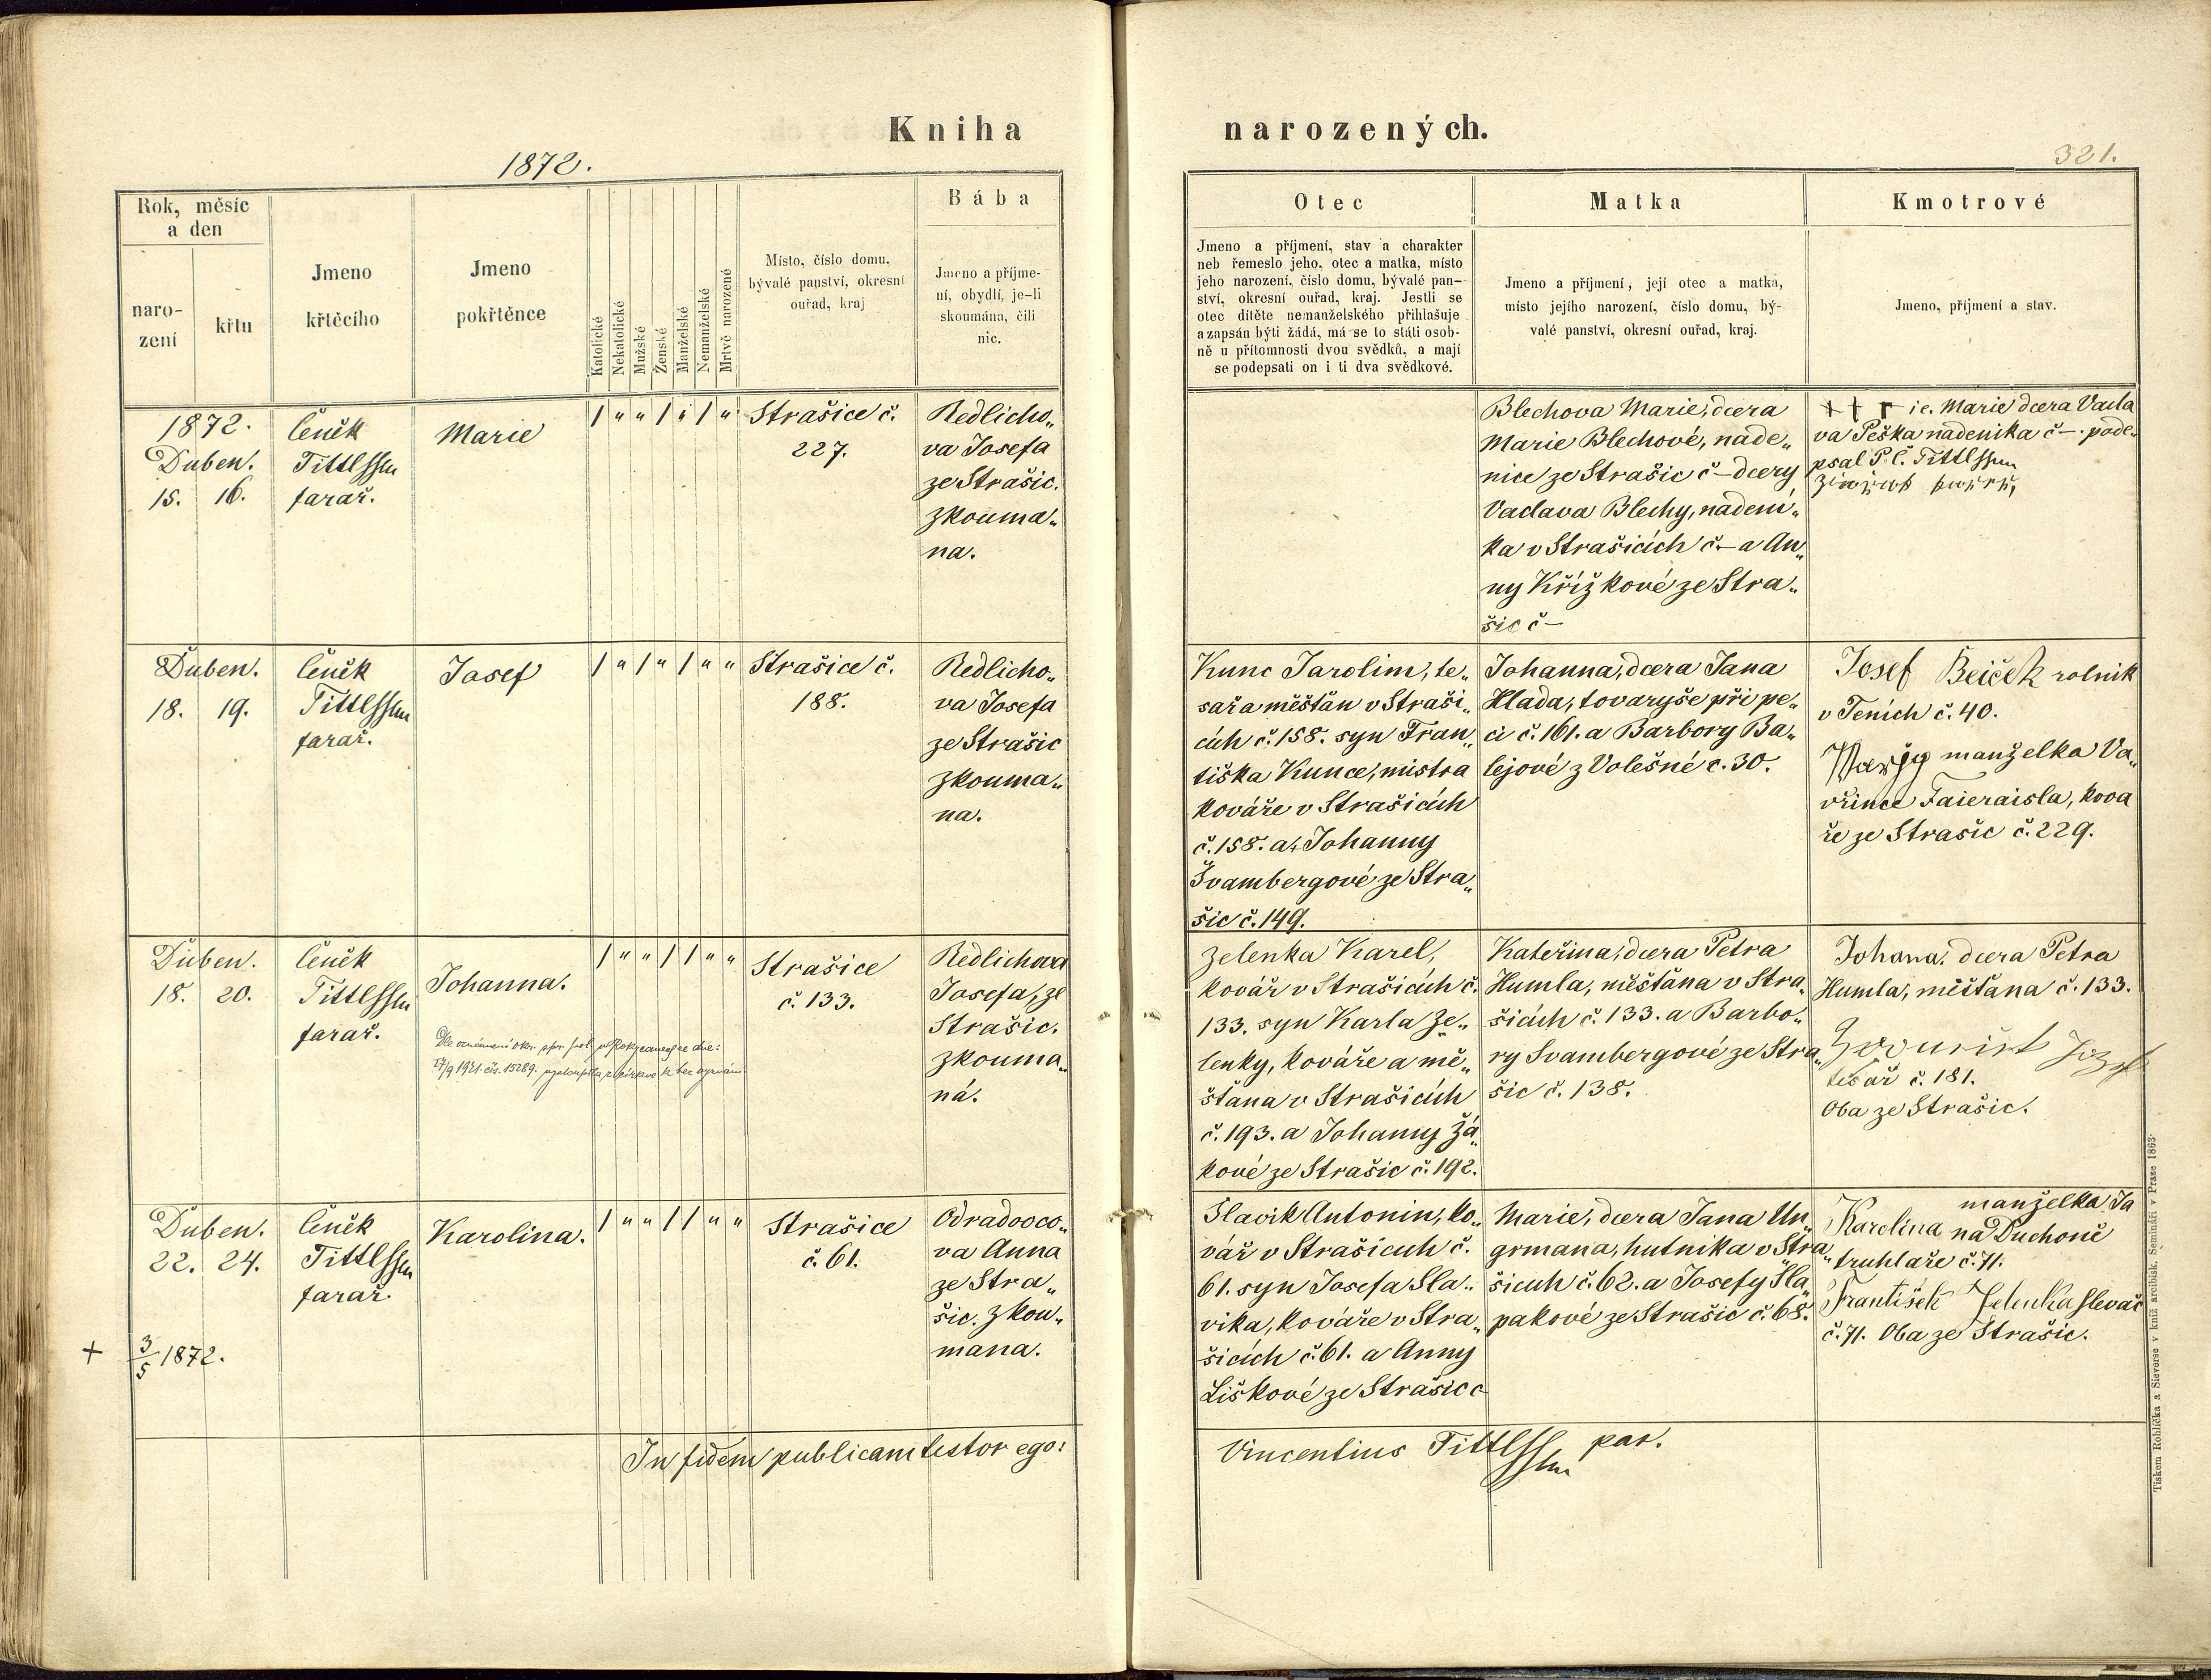 Kniha
narozených.
1872.
321.
Rok, měsíc
a den
naro-
zení
křtu
Jmeno
křtěcího
Jmeno
pokřtěnce
Katolické
Nekatolické
Mužské
Ženské
Manželské
Nemanželské
Mrtvě narozené
Místo, číslo domu,
bývalé panství, okresní
ouřad, kraj
Bába
Jmeno a příjme-
ní, obydlí, je-li
skoumána, čili
nic.
Otec
Jmeno a příjmení, stav a charakter
neb řemeslo jeho, otec a matka, místo
jeho narození, číslo domu, bývalé pan-
ství, okresní ouřad, kraj. Jestli se
otec dítěte nemanželského přihlašuje
a zapsán býti žádá, má se to státi osob-
ně u přítomnosti dvou svědků, a mají
se podepsati on i ti dva svědkové.
Matka
Jmeno a příjmení, její otec a matka,
místo jejího narození, číslo domu, bý-
valé panství, okresní ouřad, kraj.
Kmotrové
Jmeno, příjmení a stav.
1872.
Duben.
15. 16.
Čeněk
Tittlssm
farař.
Marie
/ " " / " / "
Strašice č.
227.
Redlicho„
va Josefa
ze Strašic.
zkouma„
na.
Blechova Marie, dcera
Marie Blechové, nade„
nice ze Strašic č – dcery
Vaclava Blechy, nadení„
ka v Strašicích č. – a An„
ny Křížkové ze Stra„
šic č –
+ + + ie. Marie dcera Vacla
va Peška nadenika č –. pode„
psal P. Č. Tittlssm
Duben.
18. 19.
Čeněk
Tittlssm
farař.
Josef
/ " / " / " "
Strašice č.
188.
Redlicho„
va Josefa
ze Strašic
zkouma„
na.
Kunc Jarolim, te„
sař a měšťan v Straši„
cích č. 158. syn Fran„
tiška Kunce, mistra
kováře v Strašicích
č. 158. a Johanny
Švambergové ze Stra„
šic č. 149.
Johanna, dcera Jana
Hlada, tovaryše při pe„
ci č. 161. a Barbory Ba„
lejové z Volešné č. 30.
Josef Beiček rolnik
v Tenich č. 40.
manželka Va„
vřince Faieraisla, kova
ře ze Strašic č. 229.
Duben.
18. 20.
Čeněk
Tittlssm
farař.
Johanna.
Dle oznámení okr. spr. pol. v Rokycanech ze dne:
17/9 1921 čís. 15289. vystoupila z církve k bez vyznání
/ " " / / " "
Strašice
č. 133.
Redlichova
Josefa, ze
Strašic.
zkouma„
ná.
Zelenka Karel,
kovář v Strašicích č.
133. syn Karla Ze„
lenky, kováře a mě„
šťana v Strašicích
č. 193. a Johanny Žá„
kové ze Strašic č. 192.
Kateřina, dcera Petra
Humla, měšťana v Stra„
šicích č. 133. a Barbo„
ry Svambergové ze Stra„
šic č. 138.
Johana. dcera Petra
Humla, měšťana č. 133.
tesař č. 181.
Oba ze Strašic.
Duben.
22. 24.
+ 3/5 1872.
Čeněk
Tittlssm
farař.
Karolina.
/ " " / / " "
Strašice
č. 61.
Odradovco„
va Anna
ze Stra„
šic. zkou„
mana.
Slavik Antonin, ko„
vář v Strašicích č.
61. syn Josefa Sla„
vika, kováře v Stra„
šicích č. 61. a Anny
Liškové ze Strašic č
Marie, dcera Jana Un„
grmana, hutnika v Stra„
šicích č. 62. a Josefy Šla„
pakové ze Strašic č. 68.
manželka Ja
Karolina na Duchoně
truhlaře č. 71.
František Zelenka slevač
č. 71. Oba ze Strašic.
In fidem publicam testor ego:
Vincentius Tittlssm par.
Tiskem Rohlíčka a Sieverse v kníž. arcibisk. Semináři v Praze 1863.